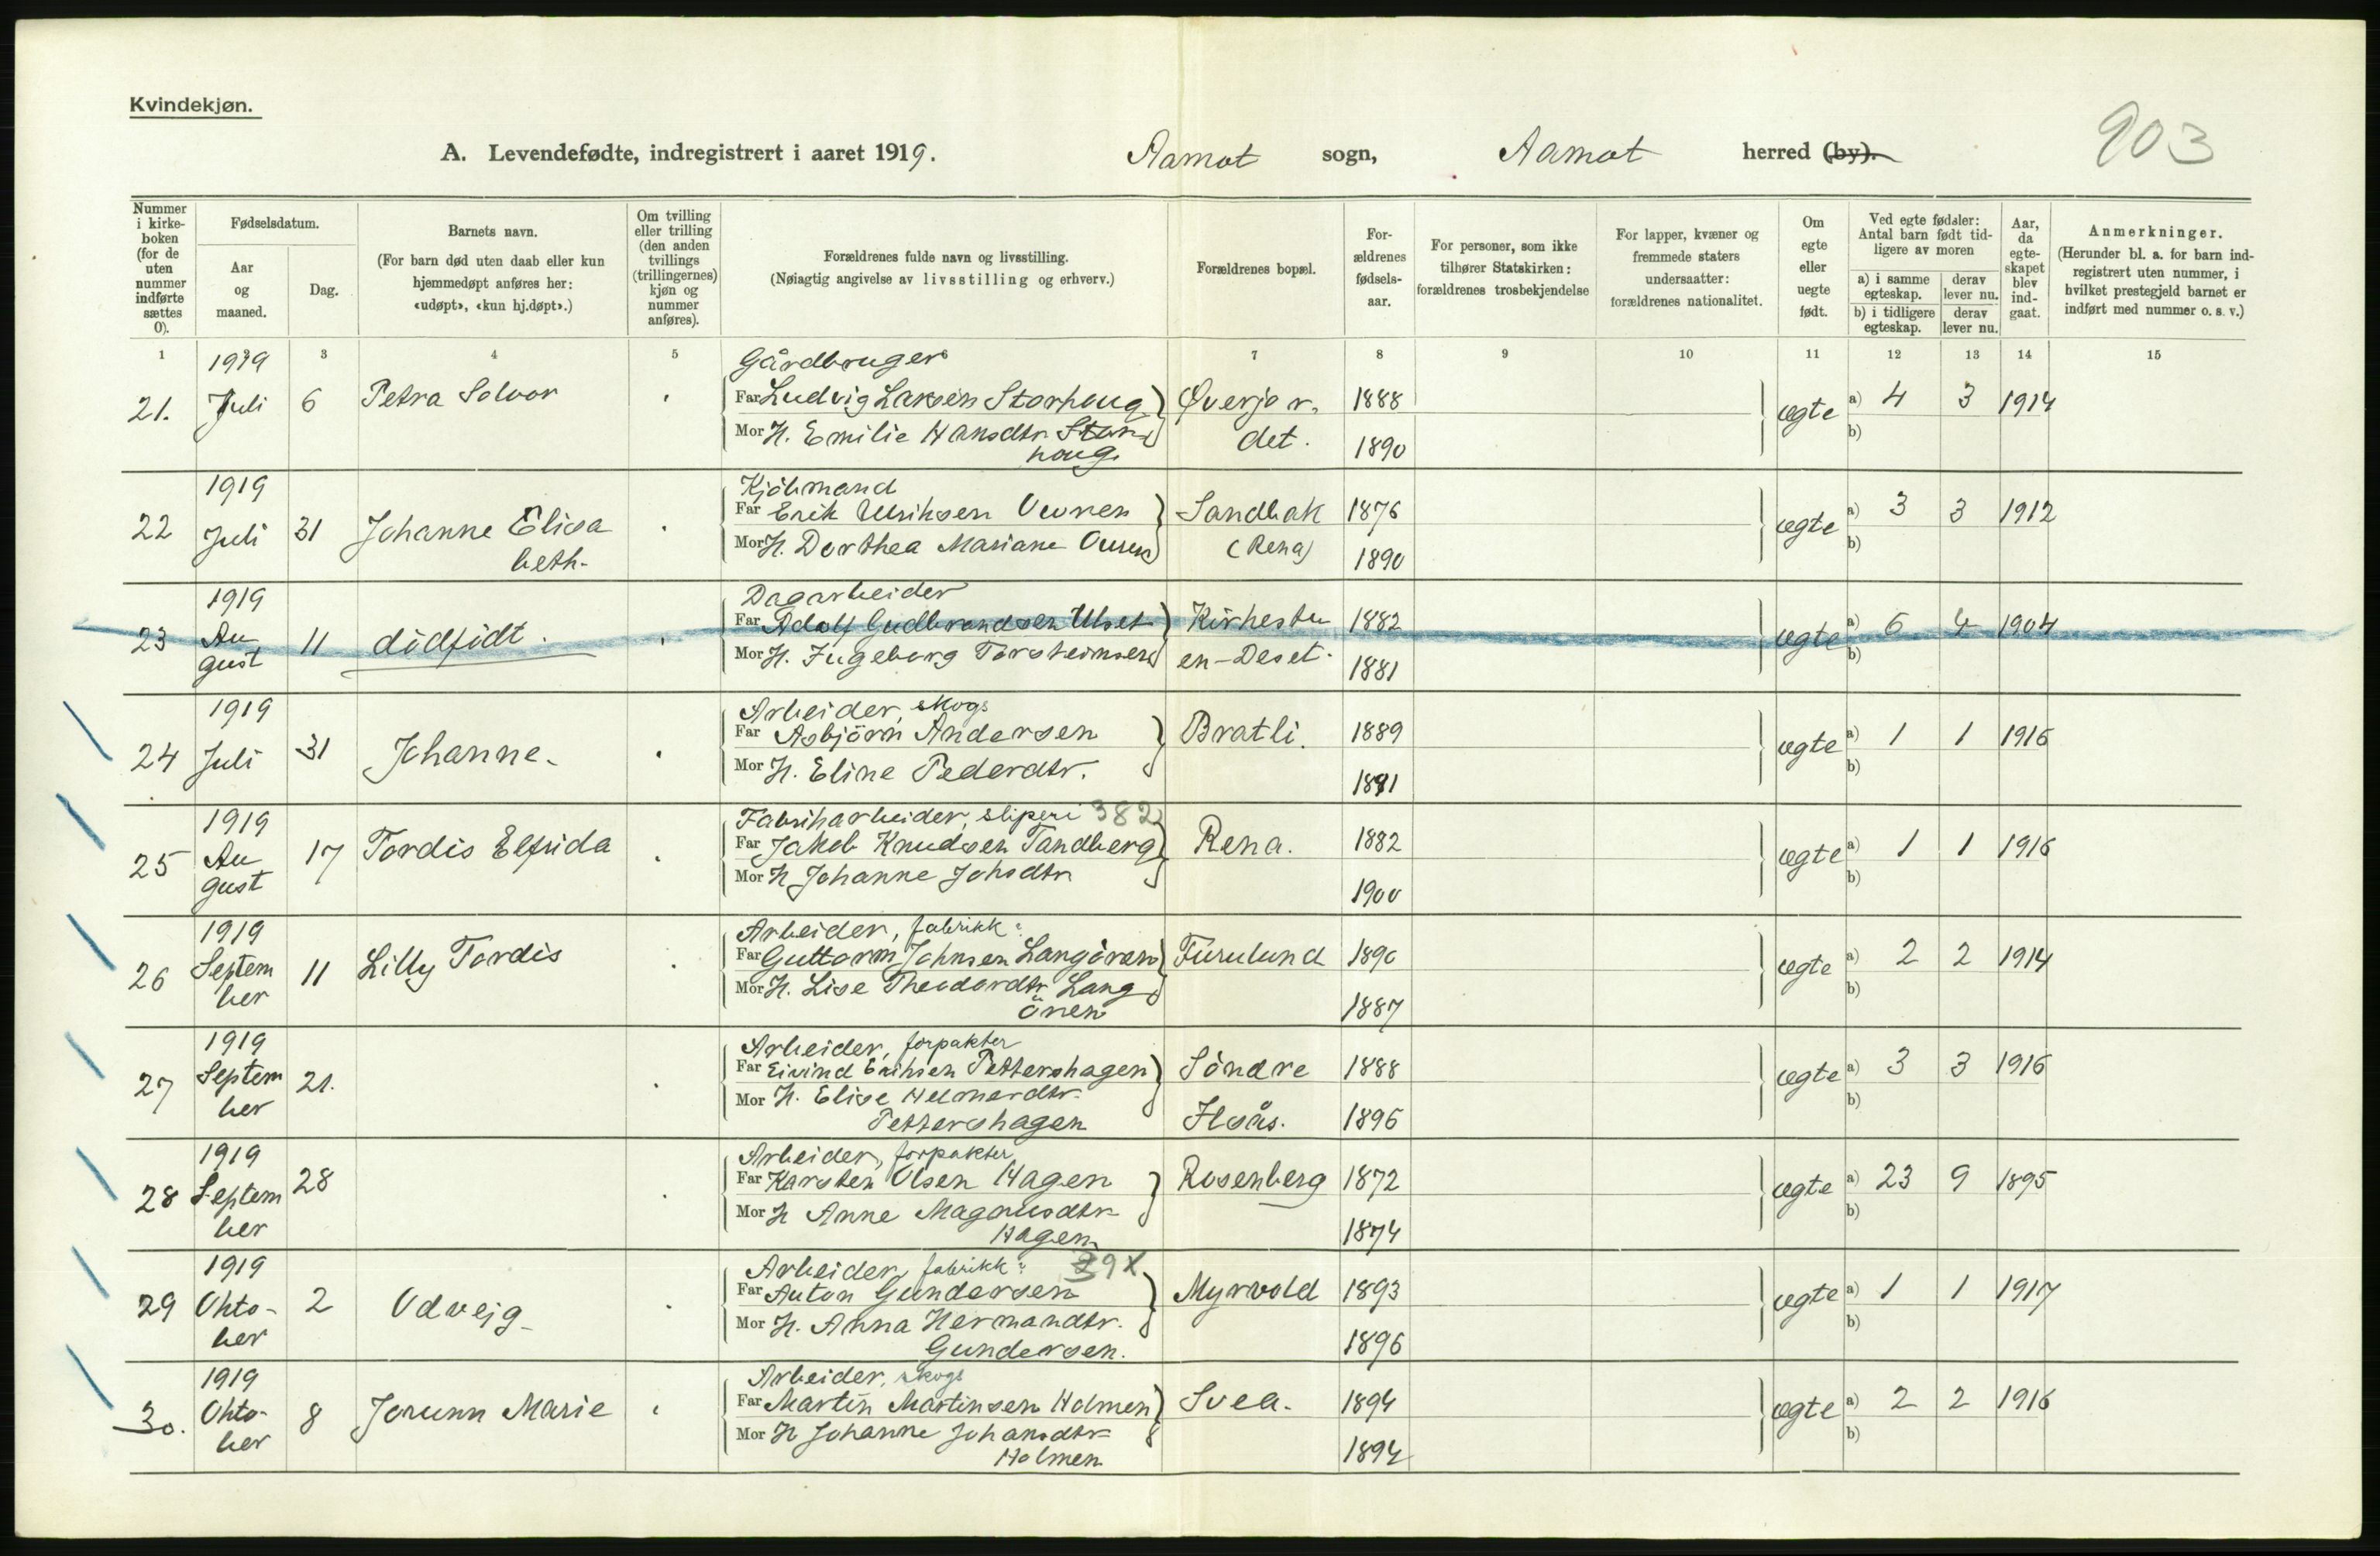 Kvindekjøn.
903
A. Levendefødte, indregistrert i aaret 1919. Aamot sogn, Aamot herred (by).
Nummer i kirke-boken (for de uten nummer indførte sættes 0).
Fødselsdatum.
Aar og maaned.
Dag.
Barnets navn.
(For barn død uten daab eller kun hjemmedøpt anføres her: «udøpt», «kun hj.døpt».)
Om tvilling eller trilling (den anden tvillings (trillingernes) kjøn og nummer anføres).
Forældrenes fulde navn og livsstilling.
(Nøiagtig angivelse av livsstilling og erhverv.)
Forældrenes bopæl.
For-ældrenes fødsels-aar.
For personer, som ikke tilhører Statskirken: forældrenes trosbekjendelse
For lapper, kvæner og fremmede staters undersaatter: forældrenes nationalitet.
Om egte eller uegte født.
Ved egte fødsler: Antal barn født tid-ligere av moren
a) i samme egteskap. derav lever nu.
b) i tidligere egteskap. derav lever nu.
Aar, da egte-skapet blev ind-gaat.
Anmerkninger.
(Herunder bl. a. for barn ind-registrert uten nummer, i hvilket prestegjeld barnet er indført med nummer o. s. v.)
1 3 4 5 6 7 8 9 10 11 12 13 14 15
1919 Gårdbruger
21. Juli 6 Petra Solvor Far Ludvig Larsen Storhoug Øverjor 1888 egte a) 4 3 1914
Mor H. Emilie Hansdtr. Stor det. 1890 b)
houg
1919 Kjöbmand
22 Juli 31 Johanne Elisa Far Erik Ulriksen Far Sandbak 1876 egte a) 3 3 1912
beth. Mor H. Dorthea Mariane (Rena) 1890 b)
1919 Dagarbeider
23 Au 11 dödfödt. Far Adolf Gudbrandsen Ulset Kirkestu 1882 egte a) 6 4 1904
gust Mor H. Ingeborg Torsteinsen en-Deset. 1881 b)
1919 Arbeider, skogs
24 Juli 31 Johanne. Far Asbjörn Andersen Bratli. 1889 egte a) 1 1 1916
Mor H. Eline Pederdtr. 1891 b)
1919 Fabrikarbeider, sliperi 382
25 Au 17 Tordis Elfrida Far Jakob Knudsen Tandberg Rena. 1882 egte a) 1 1 1916
gust Mor H Johanne Johsdtr 1900 b)
1919 Arbeider, fabrikk
26 Septem 11 Lilly Tordis Far Guttorm Johnsen Langören Furulund 1890 egte a) 2 2 1914
ber Mor H. Lise Theodordtr Lang 1887 b)
ören
1919 Arbeider, forpakter
27 Septem 21. Far Eivind Eriksen Pettershagen Söndre 1888 egte a) 3 3 1916
ber Mor H. Elise Helmerdtr. Ilsås. 1896 b)
Pettershagen
1919 Arbeider, forpakter
28 Septem 28 Far Karsten Olsen Hagen Rosenberg 1872 egte a) 23 9 1895
ber Mor H Anne Magnusdtr 1874 b)
Hagen
1919 Arbeider, fabrikk 39X
29 Okto- 2 Odveig Far Anton Gundersen Myrvold 1893 egte a) 1 1 1917
ber Mor H. Anna Hermandtr. 1896 b)
Gundersen.
1919 Arbeider, skogs
30. Okto- 8 Jorunn Marie Far Martin Martinsen Holmen Svea. 1894 egte a) 2 2 1916
ber Mor H Johanne Johansdtr 1894 b)
Holmen